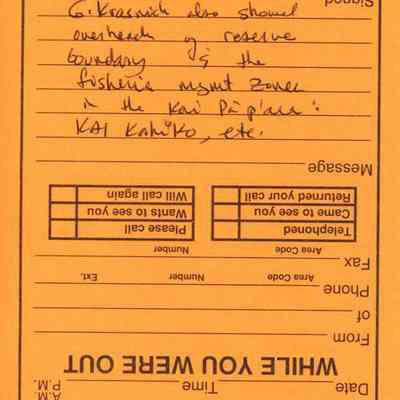 G. Krasnick also showed
overheads of reserve
boundary & the
fisheries mgmt zones
in the Kai
KAI Kahiko, etc.
WHILE YOU WERE OUT
Date Time A.M.
P.M.
From
of
Phone
Area Code Number Ext.
Fax
Area Code Number
Telephoned Please call
Came to see you Wants to see you
Returned your call Will call again
Message
Signed